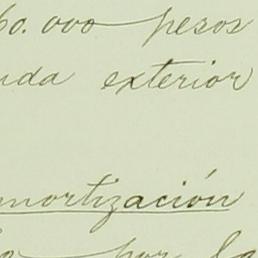 60.000 pesos
uda exterior
mortización
por la